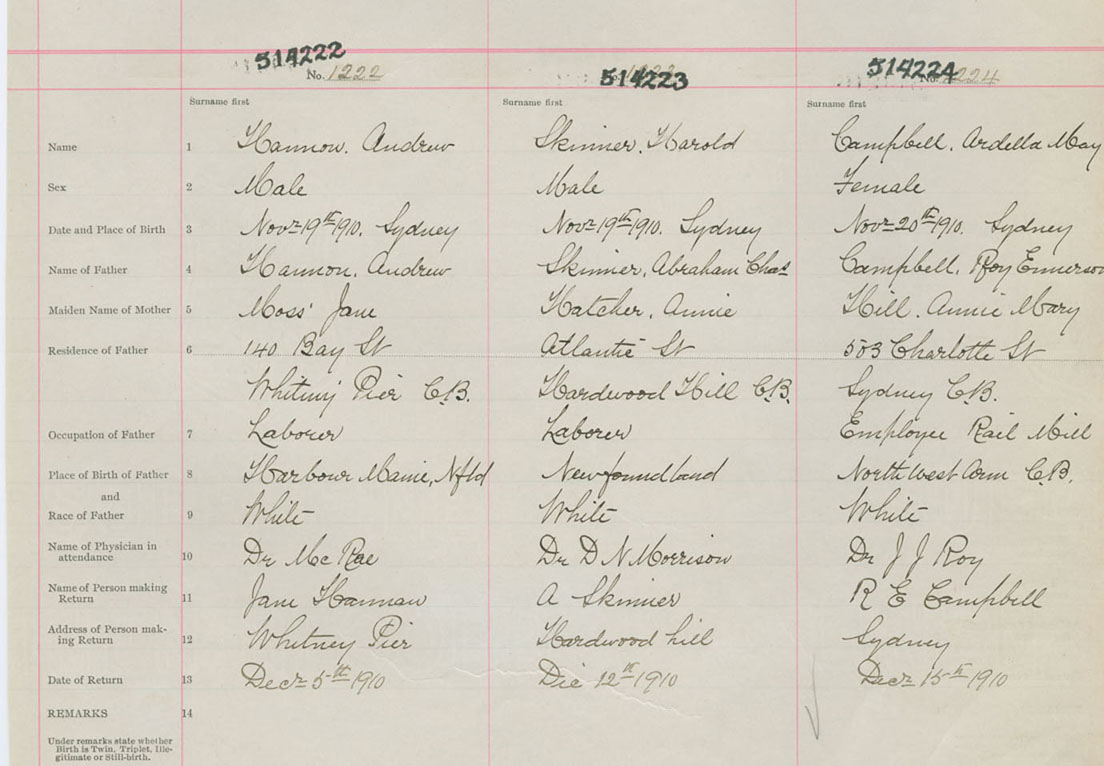 514222 514223 514224
No. 1222 No. 1224
Surname first Surname first Surname first
Name 1 Hannon. Andrew Skinner. Harold Campbell. Ardella May
Sex 2 Male Male Female
Date and Place of Birth 3 Novr 19th 1910. Sydney Novr 19th 1910. Sydney Novr 20th 1910. Sydney
Name of Father 4 Hannon. Andrew Skinner, Abraham Chas Campbell. Roy Emmerson
Maiden Name of Mother 5 Moss' Jane Hatcher. Annie Hill. Annie Mary
Residence of Father 6 140 Bay St Atlantic St 503 Charlotte St
Whitny Pier C.B. Hardwood Hill C.B. Sydney C.B.
Occupation of Father 7 Laborer Laborer Employee Rail Mill
Place of Birth of Father 8 Harbour Maine, Nfld Newfoundland North West Arm C.B.
and
Race of Father 9 White White White
Name of Physician in
attendance 10 Dr Mc Rae Dr D N Morrison Dr J J Roy
Name of Person making
Return 11 Jane Hannan A Skinner R E Campbell
Address of Person mak-
ing Return 12 Whitney Pier Hardwood hill Sydney
Date of Return 13 Decr 5th 1910 Die 12th 1910 Decr 15th 1910
REMARKS 14
Under remarks state whether
Birth is Twin, Triplet, Ille-
gitimate or Still-birth.